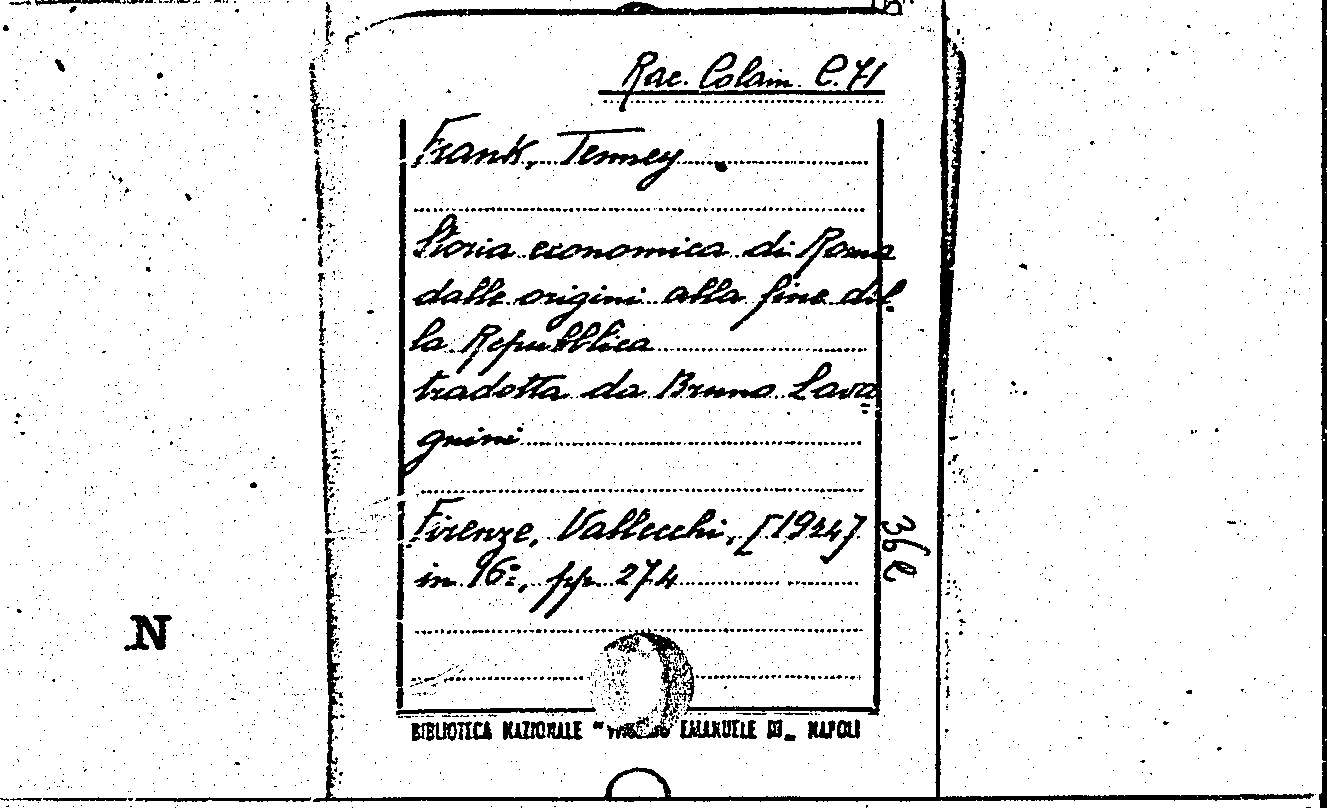 Rac. Colain C.71
Frank, Tenney
Storia economica di Roma
dalle origini alla fine del
la Repubblica
tradotta da Bruno Lava
gnini
Firenze, Vallecchi, [1924]
in 16º, pp. 274
36 e
N
BIBLIOTECA NAZIONALE " EMANUELE III„ NAPOLI